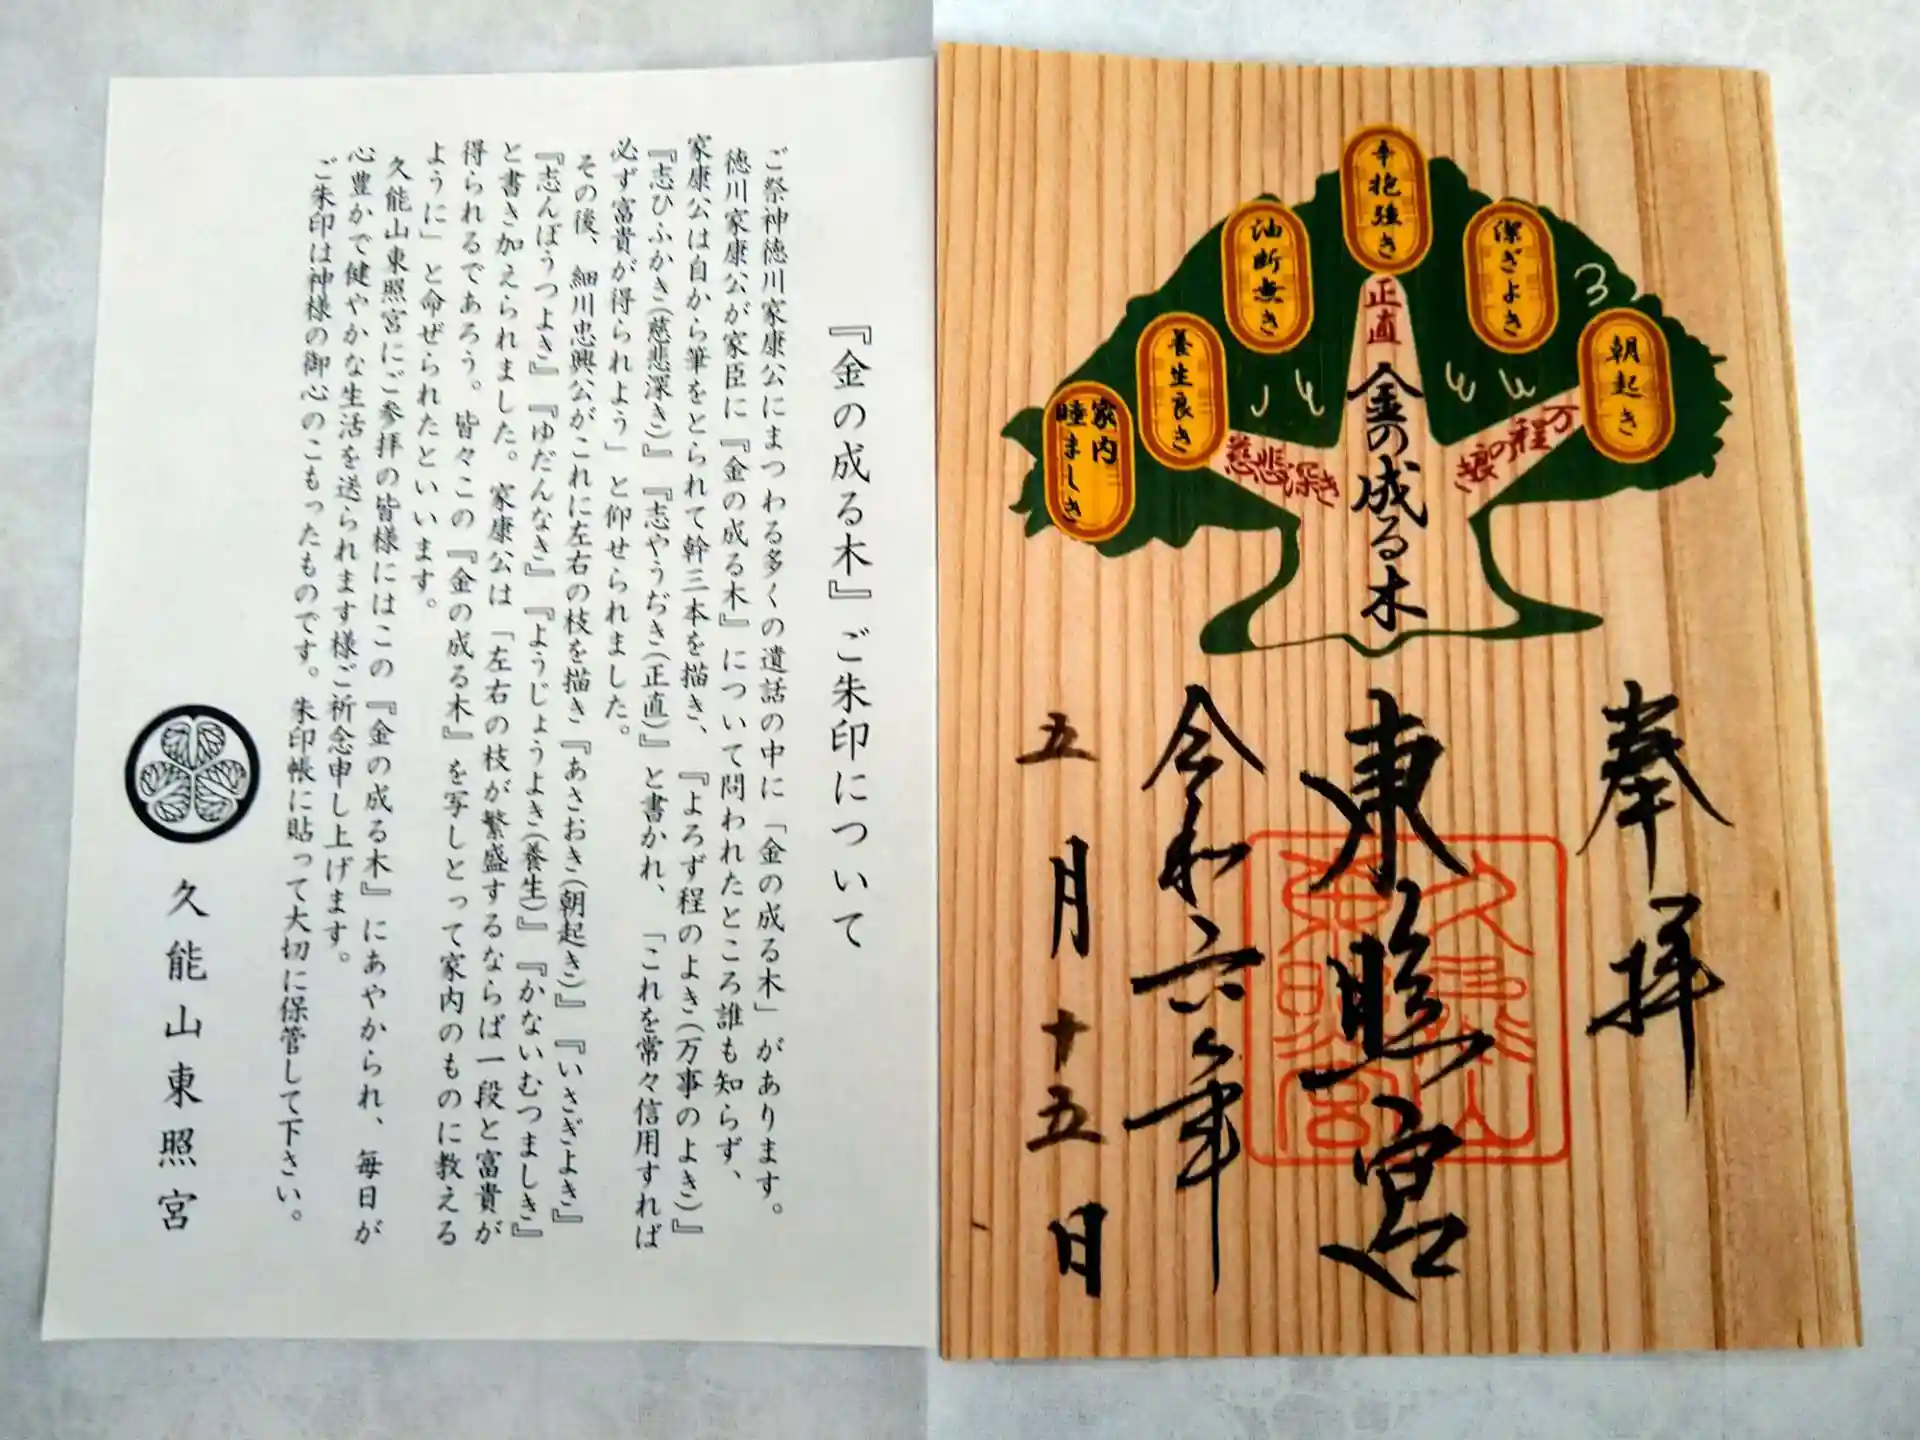 『金の成る木』ご朱印について
ご祭神徳川家康公にまつわる多くの遺話の中に「金の成る木」があります。
徳川家康公が家臣に『金の成る木』について問われたところ誰も知らず、
家康公は自から筆をとられて幹三本を描き、『よろず程のよき(万事のよき)』
『志ひふかき(慈悲深き)』『志やうぢき(正直)』と書かれ、「これを常々信用すれば
必ず富貴が得られよう」と仰せられました。
その後、細川忠興公がこれに左右の枝を描き『あさおき(朝起き)』『いさぎよき』
『志んぼうつよき』『ゆだんなき』『ようじょうよき(養生)』『かないむつましき』
と書き加えられました。家康公は「左右の枝が繁盛するならば一段と富貴が
得られるであろう。皆々この『金の成る木』を写しとって家内のものに教える
ように」と命ぜられたといいます。
久能山東照宮にご参拝の皆様にはこの『金の成る木』にあやかられ、毎日が
心豊かで健やかな生活を送られます様ご祈念申し上げます。
ご朱印は神様の御心のこもったものです。朱印帳に貼って大切に保管して下さい。
久能山東照宮
朝起き
潔ぎよき
辛抱強き
油断無き
養生良き
家内
睦ましき
万程の良き
正直
慈悲深き
金の成る木
奉拝
東照宮
久能山
東照宮
令和六年
五月十五日